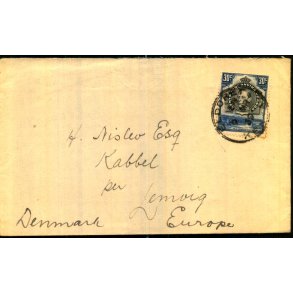 30c 30c
H. Nislev Esq
Kabbel
per
Lemvig
Denmark Europe